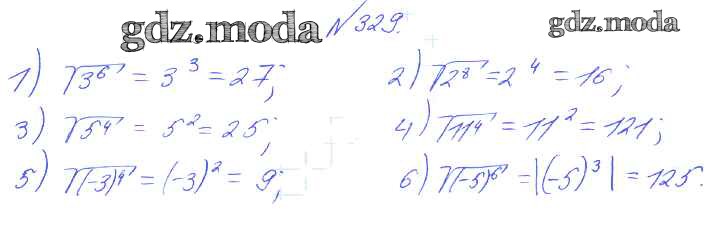 gdz.moda №329. gdz.moda
1) √3⁶ = 3³ = 27; 2) √2⁸ = 2⁴ = 16;
3) √5⁴ = 5² = 25; 4) √11⁴ = 11² = 121;
5) √(-3)⁴ = (-3)² = 9; 6) √(-5)⁶ = |(-5)³| = 125.